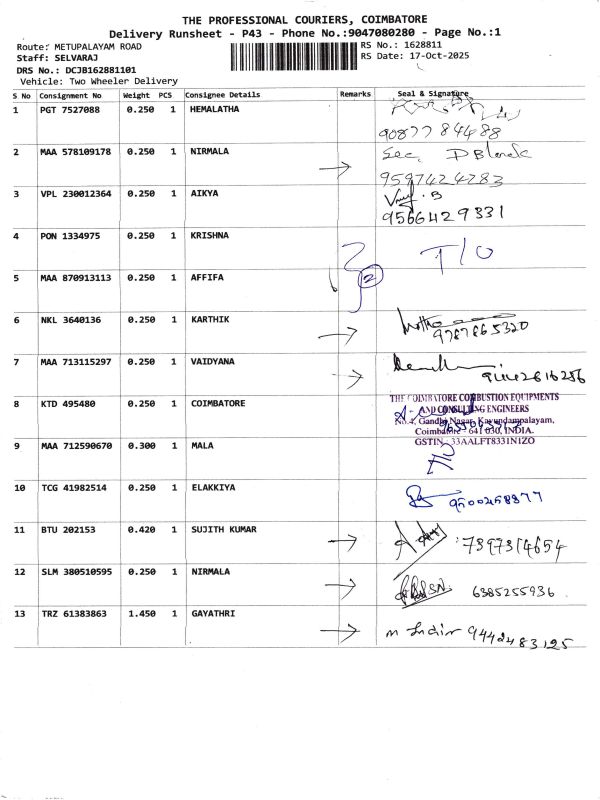 THE PROFESSIONAL COURIERS, COIMBATORE
Delivery Runsheet - P43 - Phone No.:9047080280 - Page No.:1
Route: METUPALAYAM ROAD RS No.: 1628811
Staff: SELVARAJ RS Date: 17-Oct-2025
DRS No.: DCJB162881101
Vehicle: Two Wheeler Delivery
S No Consignment No Weight PCS Consignee Details Remarks Seal & Signature
1 PGT 7527088 0.250 1 HEMALATHA
9087784488
2 MAA 578109178 0.250 1 NIRMALA Sec.
9597424283
3 VPL 230012364 0.250 1 AIKYA
9566429331
4 PON 1334975 0.250 1 KRISHNA T/O
2
5 MAA 870913113 0.250 1 AFFIFA
6 NKL 3640136 0.250 1 KARTHIK
9787865320
7 MAA 713115297 0.250 1 VAIDYANA
9442616256
8 KTD 495480 0.250 1 COIMBATORE
THE COIMBATORE COMBUSTION EQUIPMENTS
AND CONSULTING ENGINEERS
No.4, Gandhi Nagar, Kavundampalayam,
Coimbatore - 641 030, INDIA.
GSTIN: 33AALFT8331N1ZO
9 MAA 712590670 0.300 1 MALA
10 TCG 41982514 0.250 1 ELAKKIYA
9500258877
11 BTU 202153 0.420 1 SUJITH KUMAR
7397314654
12 SLM 380510595 0.250 1 NIRMALA
6385255936
13 TRZ 61383863 1.450 1 GAYATHRI
9442483125